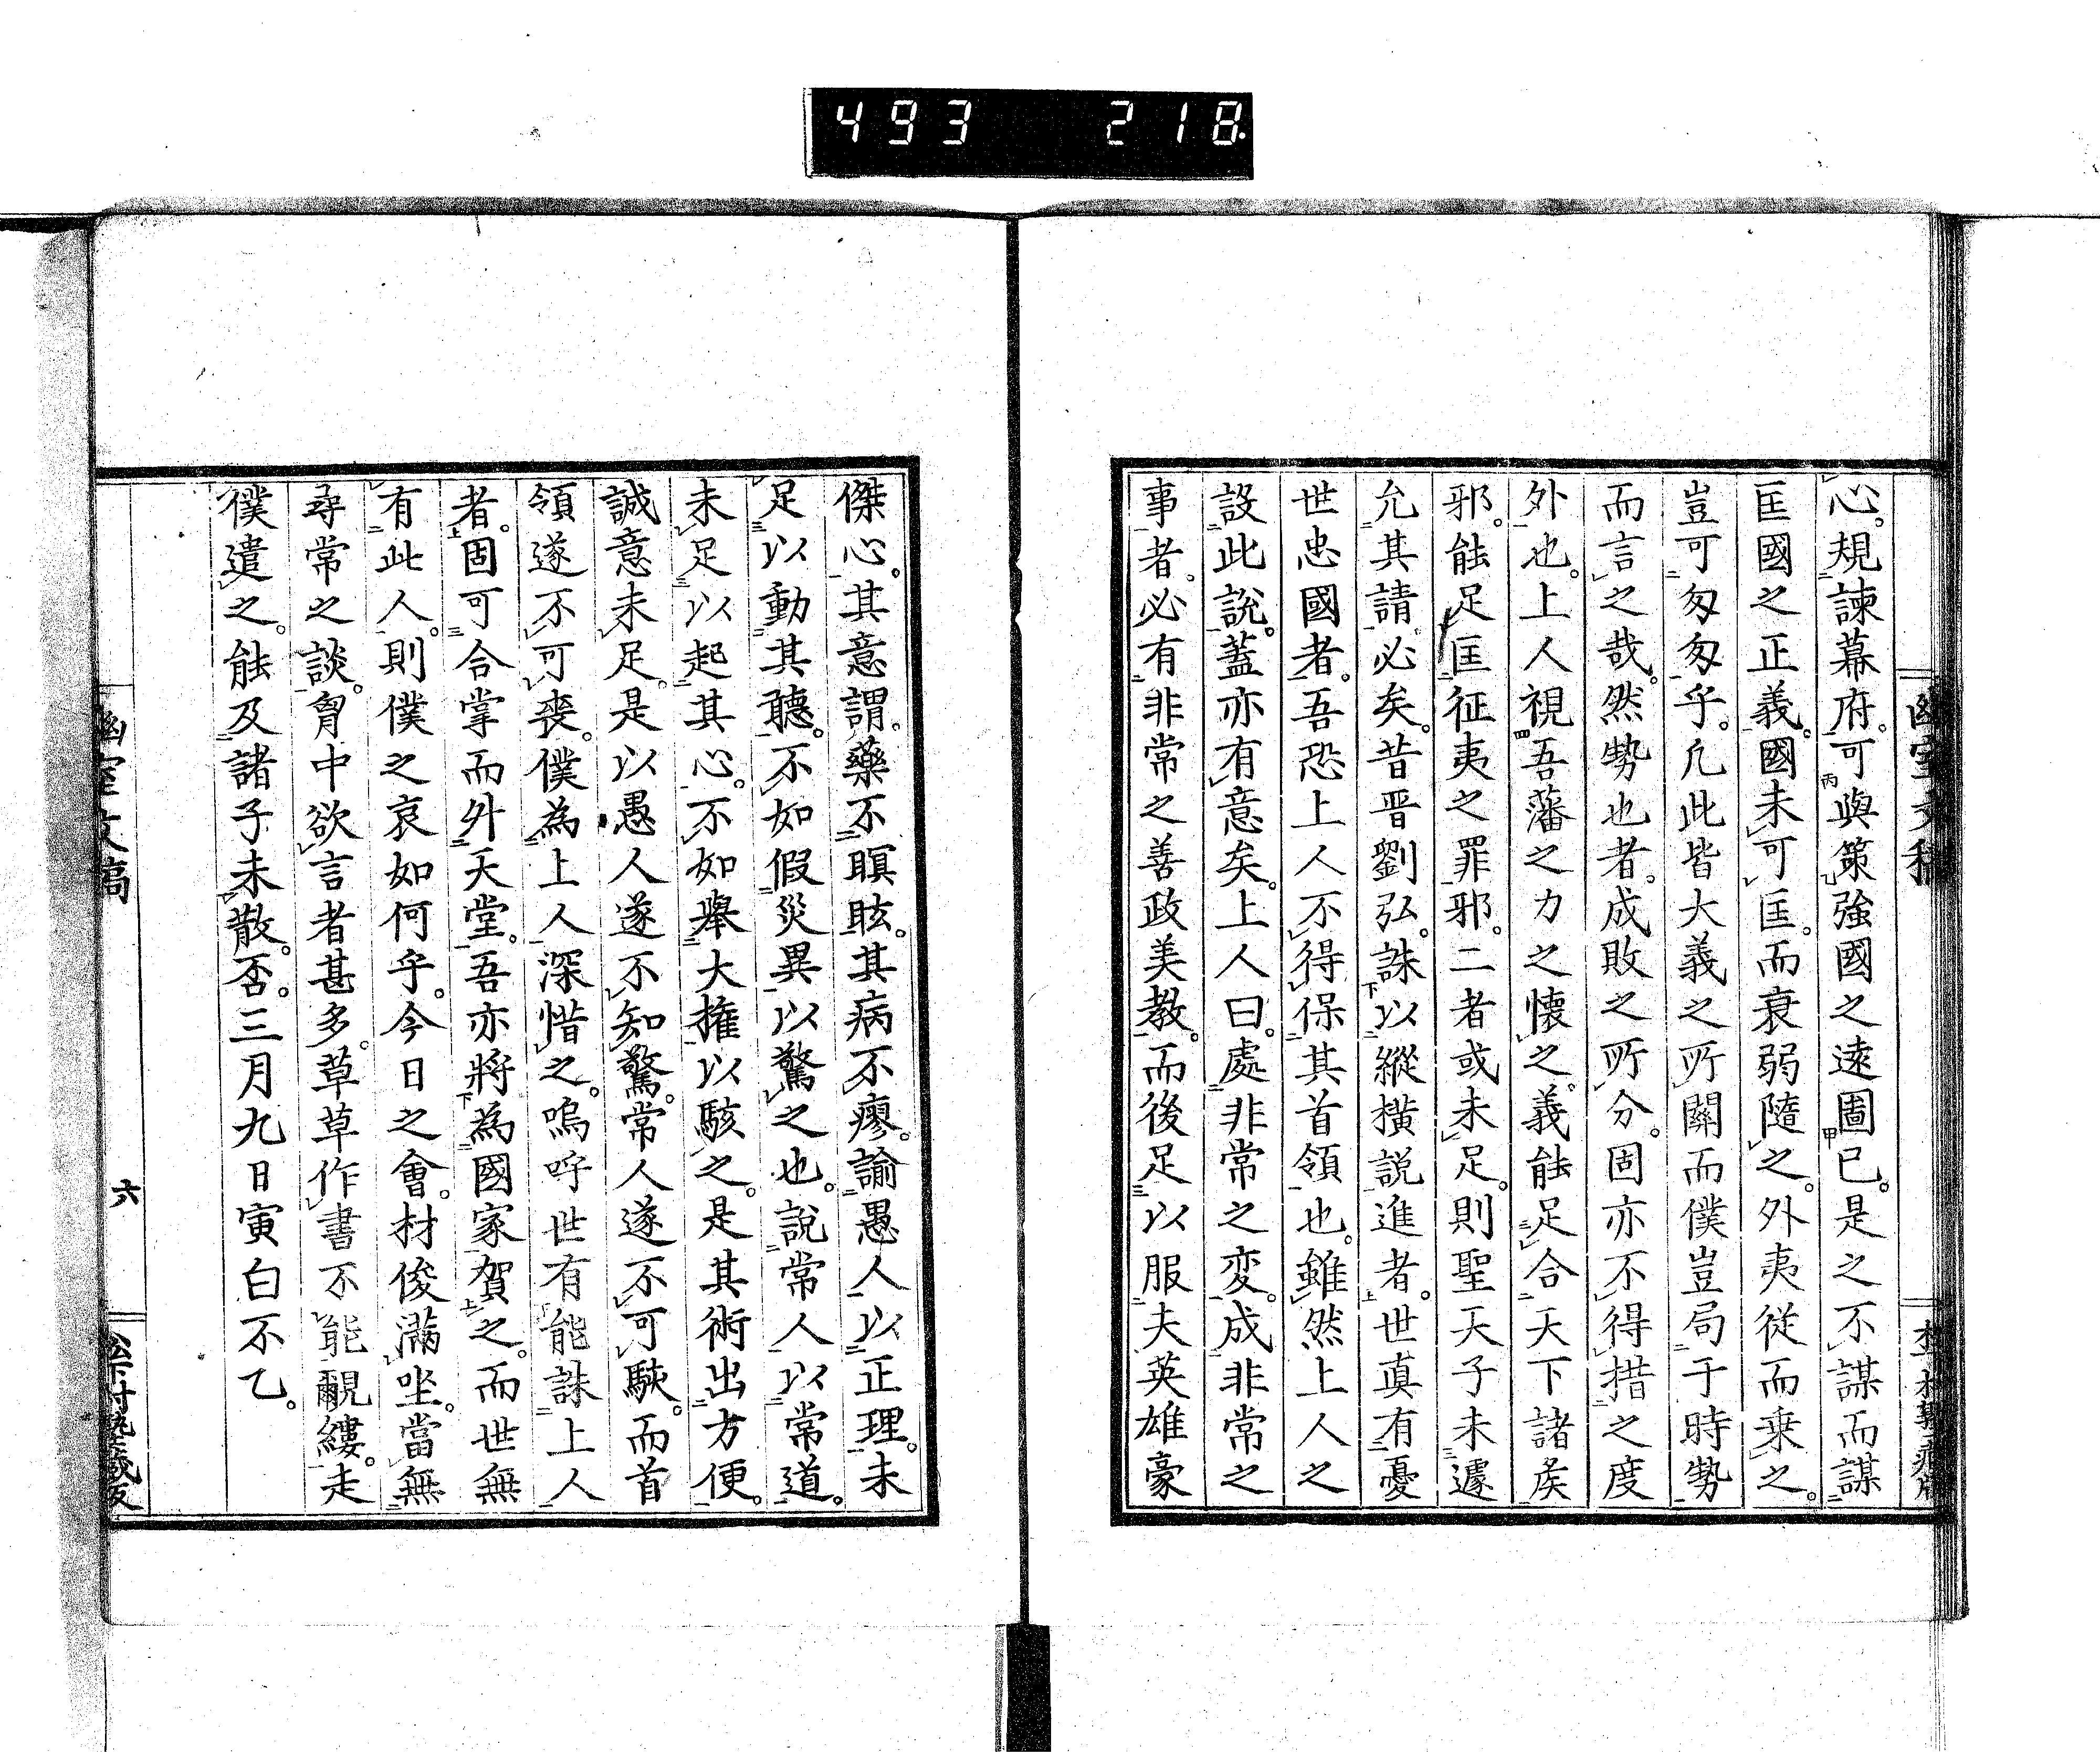 493 218
幽室文稿
心。規諫幕府。可與策強國之遠圖已。是之不謀而謀
匡國之正義。國未可匡。而衰弱隨之。外夷從而乗之。
豈可匆匆乎。凡此皆大義之所關而僕豈局于時勢
而言之哉。然勢也者。成敗之所分。固亦不得措之度
外也。上人視吾藩之力之懷之。義能足合天下諸矦
邪。能足匡征夷之罪邪。二者或未足。則聖天子未遽
允其請必矣。昔晋劉弘。誅以縱横説進者。世眞有憂
世忠國者。吾恐上人不得保其首領也。雖然上人之
設此説。蓋亦有意矣。上人曰。處非常之変。成非常之
事者。必有非常之善政美教。而後足以服夫英雄豪
傑心。其意謂。藥不瞑眩。其病不瘳。諭愚人以正理。未
足以動其聽。不如假災異以驚之也。説常人以常道。
未足以起其心。不如舉大摧以駭之。是其術出方便。
誠意未足。是以愚人遂不知驚。常人遂不可駭。而首
領遂不可喪。僕為上人深惜之。嗚呼世有能誅上人
者。固可合掌而外天堂。吾亦將為國家賀之。而世無
有此人。則僕之哀如何乎。今日之會。材俊滿坐。當無
尋常之談。胷中欲言者甚多。草草作書不能覼縷。走
僕遣之。能及諸子未散。否。三月九日寅白不乙。
幽室文稿
六
松下村塾藏版